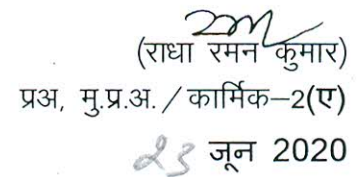 (राधा रमन कुमार)
प्रअ, मु.प्र.अ. / कार्मिक–2(ए)
23 जून 2020